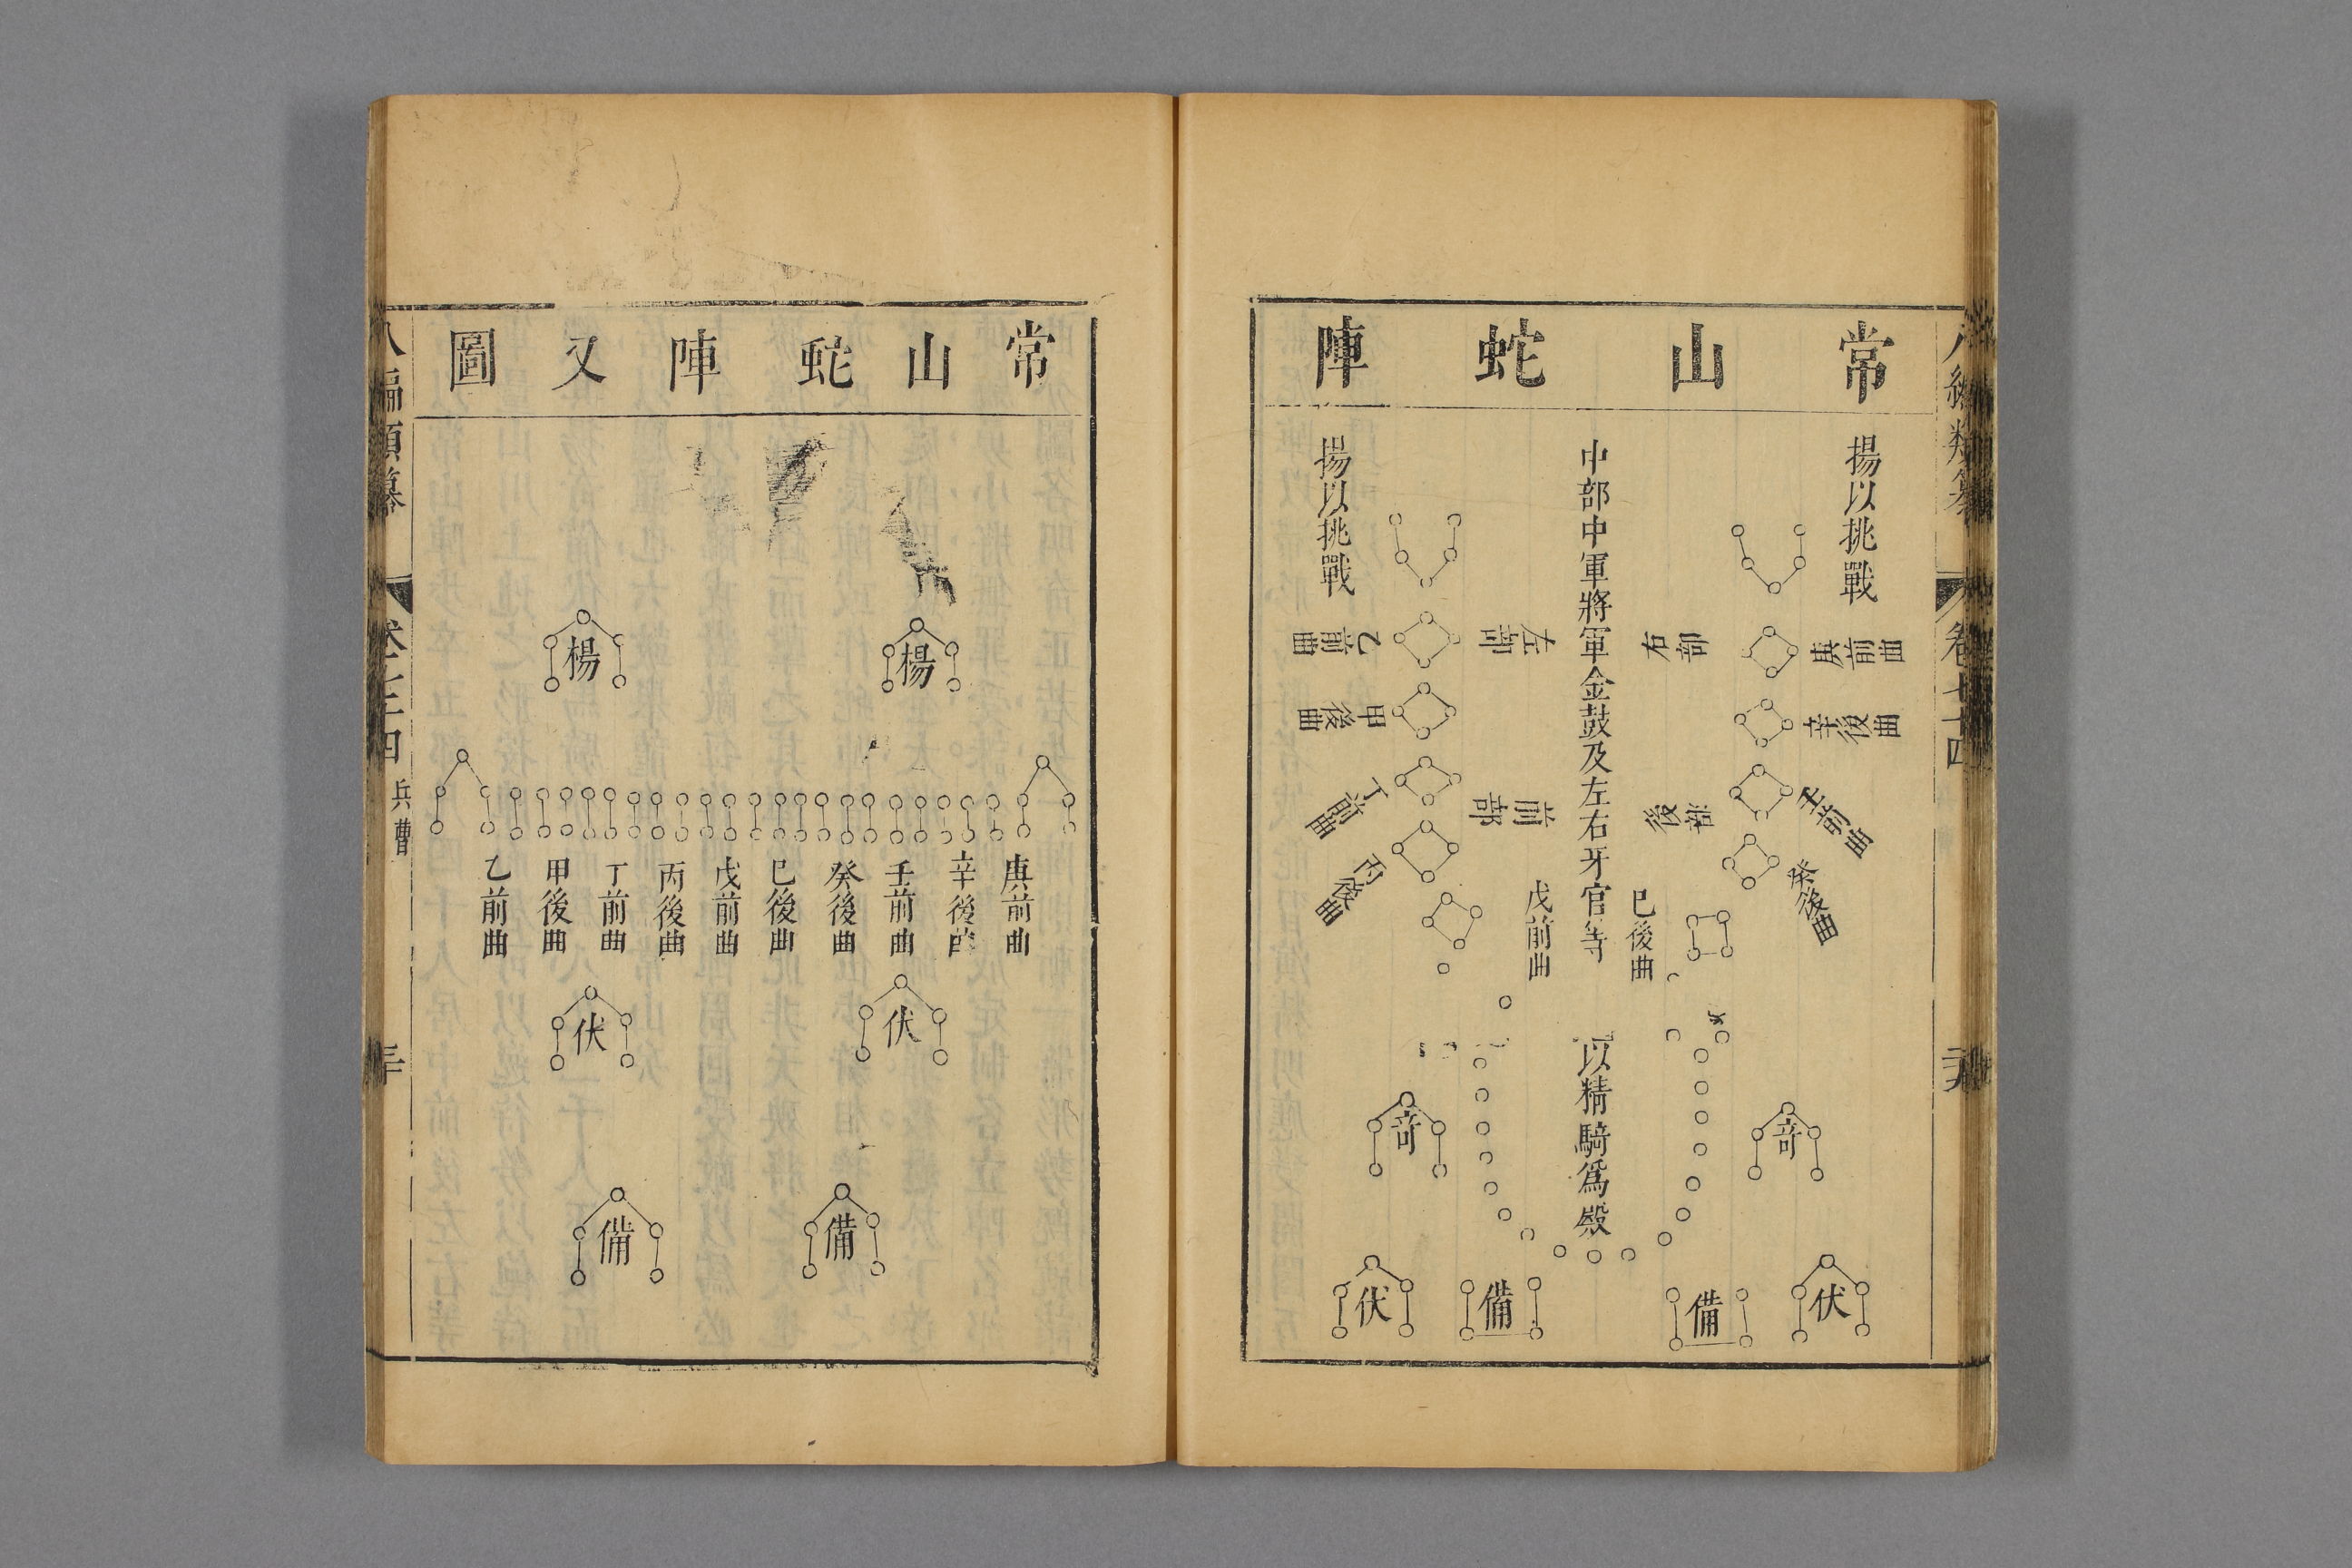 常山蛇陣
揚以挑戰
庚前曲
辛後曲
壬前曲
癸後曲
右部
後部
巳後曲
中部中軍將軍金鼓及左右牙官等
以精騎爲殿
戊前曲
左部
前部
揚以挑戰
乙前曲
甲後曲
丁前曲
丙後曲
奇
奇
伏
備
備
伏
常山蛇陣又圖
楊
楊
庚前曲
辛後曲
壬前曲
癸後曲
巳後曲
戊前曲
丙後曲
丁前曲
甲後曲
乙前曲
伏
伏
備
備
兵曹